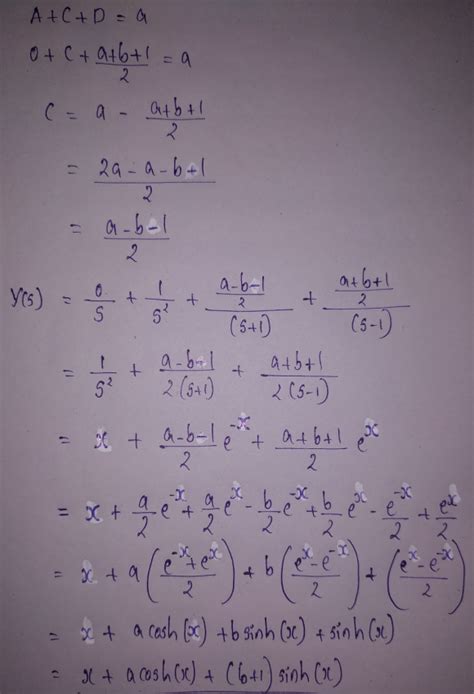 A+C+D = a
0 + C + (a+b+1)/2 = a
C = a - (a+b+1)/2
= (2a - a - b + 1)/2
= (a-b-1)/2
Y(s) = 0/s + 1/s² + ((a-b-1)/2)/(s+1) + ((a+b+1)/2)/(s-1)
= 1/s² + (a-b-1)/(2(s+1)) + (a+b+1)/(2(s-1))
= x + (a-b-1)/2 e^-x + (a+b+1)/2 e^x
= x + a/2 e^-x + a/2 e^x - b/2 e^-x + b/2 e^x - e^-x/2 + e^x/2
= x + a((e^-x + e^x)/2) + b((e^x - e^-x)/2) + ((e^x - e^-x)/2)
= x + a cosh(x) + b sinh(x) + sinh(x)
= x + a cosh(x) + (b+1) sinh(x)